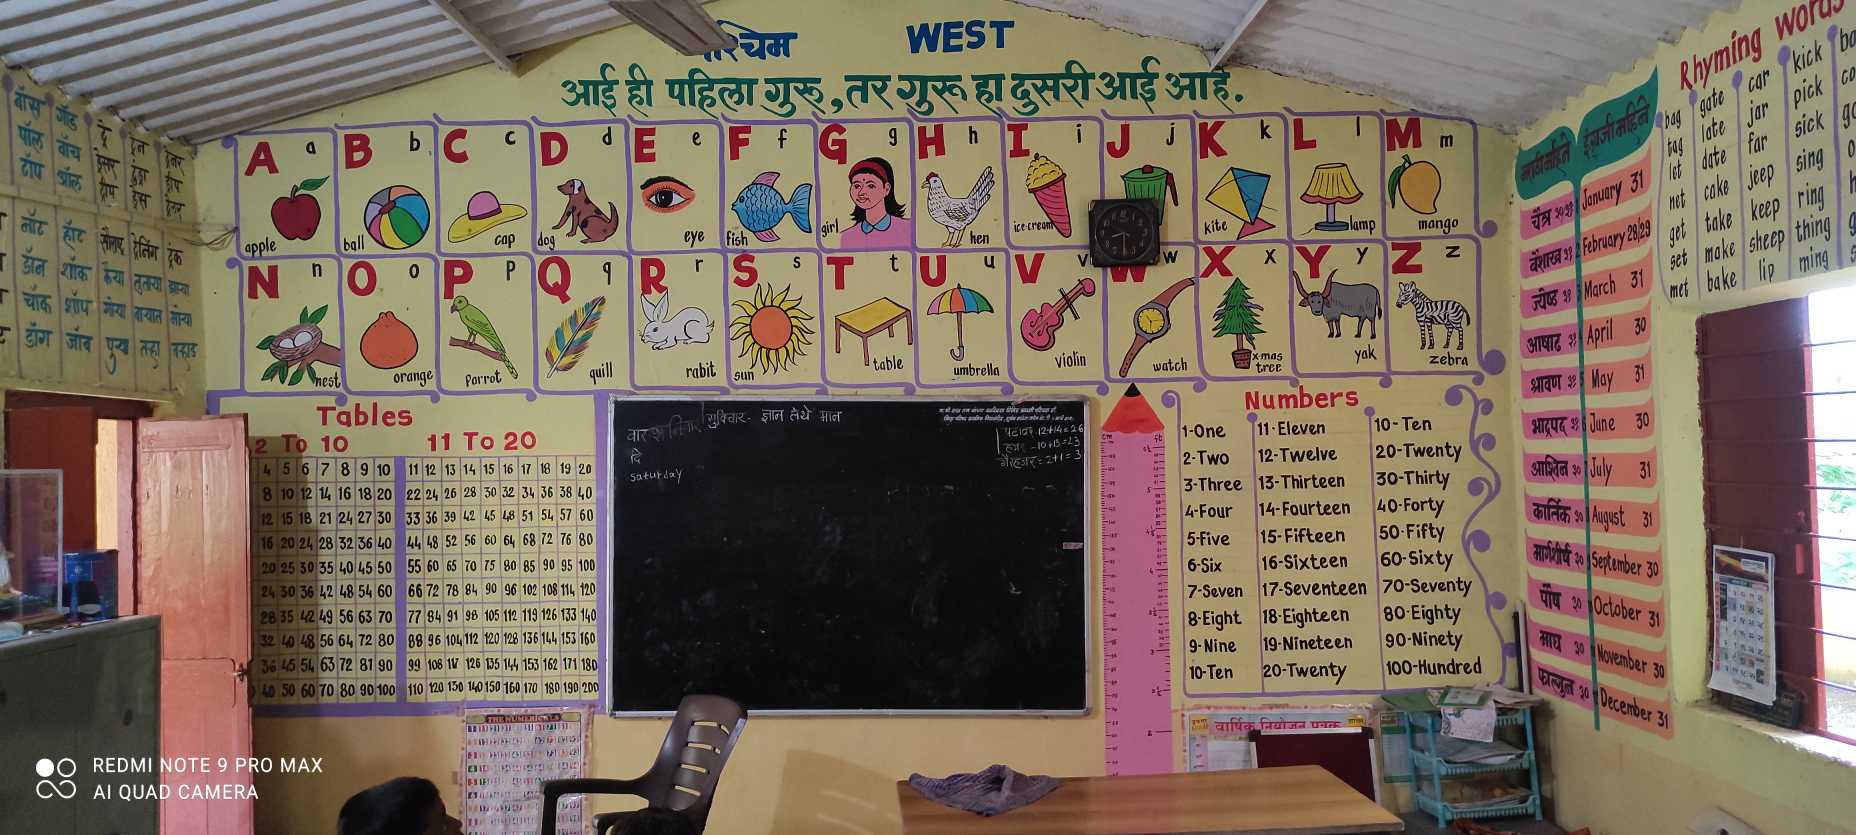 पश्चिम WEST
आई ही पहिला गुरू, तर गुरू हा दुसरी आई आहे.
A a apple
B b ball
C c cap
D d dog
E e eye
F f fish
G g girl
H h hen
I i ice-cream
J j
K k kite
L l lamp
M m mango
N n nest
O o orange
P p Parrot
Q q quill
R r rabit
S s sun
T t table
U u umbrella
V v violin
W w watch
X x x-mas tree
Y y yak
Z z zebra
Tables
2 To 10 11 To 20
4 5 6 7 8 9 10 11 12 13 14 15 16 17 18 19 20
8 10 12 14 16 18 20 22 24 26 28 30 32 34 36 38 40
12 15 18 21 24 27 30 33 36 39 42 45 48 51 54 57 60
16 20 24 28 32 36 40 44 48 52 56 60 64 68 72 76 80
20 25 30 35 40 45 50 55 60 65 70 75 80 85 90 95 100
24 30 36 42 48 54 60 66 72 78 84 90 96 102 108 114 120
28 35 42 49 56 63 70 77 84 91 98 105 112 119 126 133 140
32 40 48 56 64 72 80 88 96 104 112 120 128 136 144 153 160
36 45 54 63 72 81 90 99 108 117 126 135 144 153 162 171 180
40 50 60 70 80 90 100 110 120 130 140 150 160 170 180 190 200
वार
दि
saturday
12+14=26
10+13=23
2+1=3
cm ft
Numbers
1-One 11-Eleven 10-Ten
2-Two 12-Twelve 20-Twenty
3-Three 13-Thirteen 30-Thirty
4-Four 14-Fourteen 40-Forty
5-Five 15-Fifteen 50-Fifty
6-Six 16-Sixteen 60-Sixty
7-Seven 17-Seventeen 70-Seventy
8-Eight 18-Eighteen 80-Eighty
9-Nine 19-Nineteen 90-Ninety
10-Ten 20-Twenty 100-Hundred
मराठी महिने इंग्रजी महिने
चैत्र January 31
वैशाख February 28/29
ज्येष्ठ March 31
आषाढ April 30
श्रावण May 31
भाद्रपद June 30
आश्विन ३० July 31
कार्तिक ३० August 31
मार्गशीर्ष ३० September 30
पौष ३० October 31
माघ ३० November 30
फाल्गुन ३० December 31
Rhyming words
bag gate car kick
tag late jar pick
let date far sick
net cake jeep sing
get take keep ring
set make sheep thing
met bake lip ming
बॉस गॉड
पॉल बॉच
टॉप ऑल
नॉट हॉट
डॉन शॉक
चॉक शॉप
डॉग जॉब
THE NUMERICALS
वार्षिक नियोजन पत्रक
REDMI NOTE 9 PRO MAX
AI QUAD CAMERA